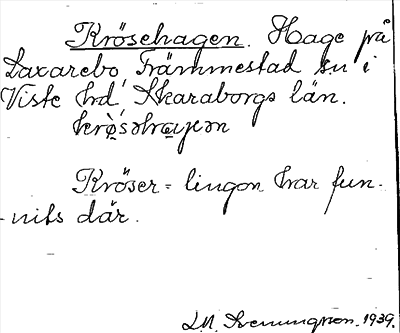 Krösehagen. Hage på
Laxarebo, Främmestad sn i
Viste hd, Skaraborgs län.
Kröser = lingon har fun-
-nits där.
L.M. Svenungsson. 1939.